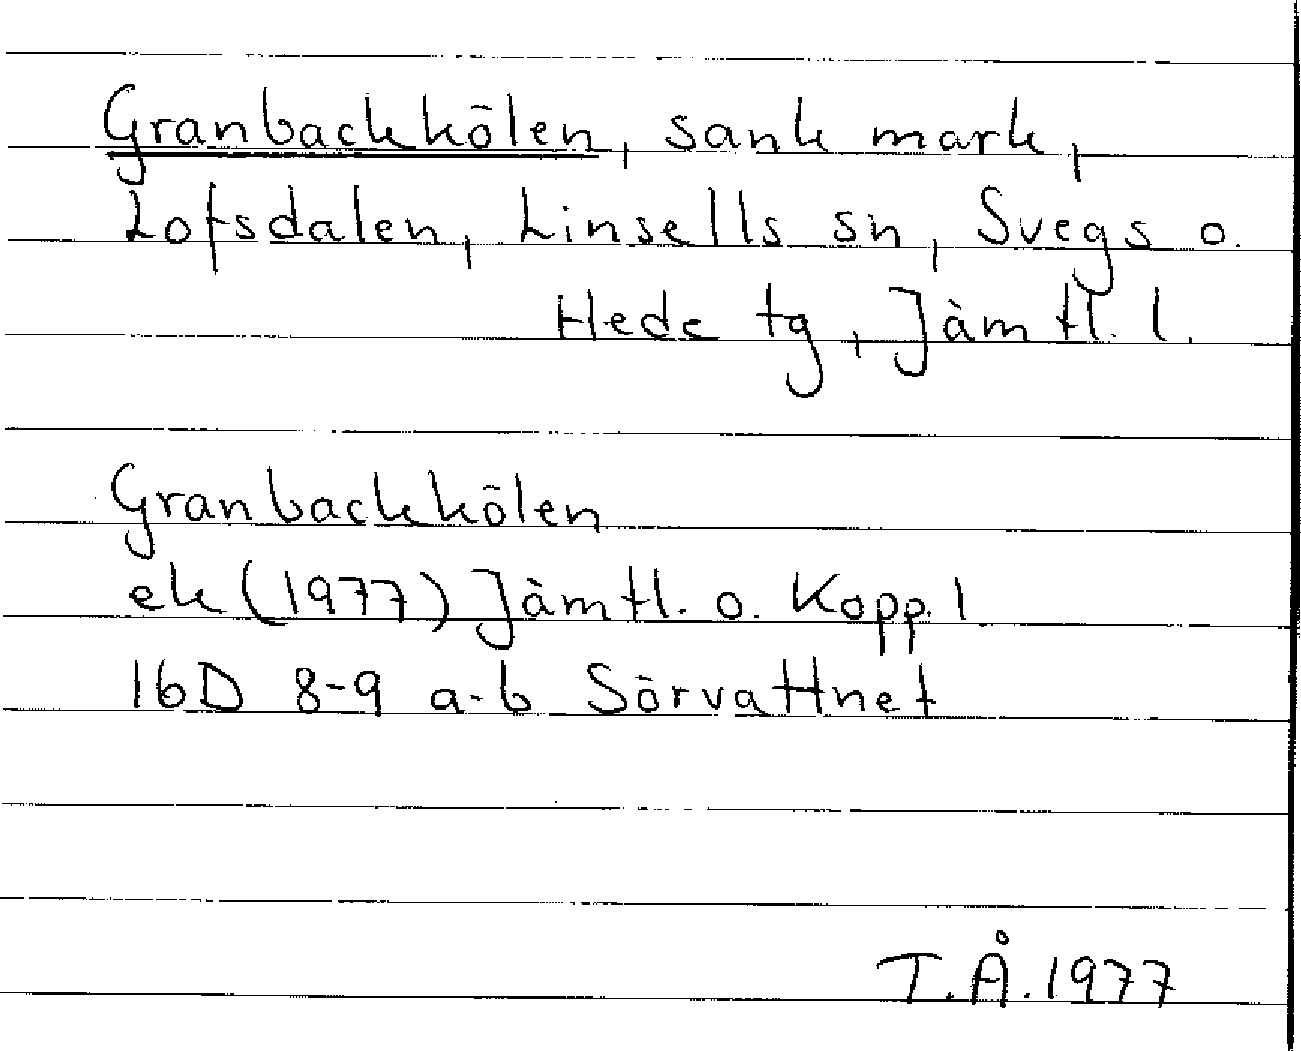 Granbackkölen, sank mark,
Lofsdalen, Linsells sn, Svegs o.
Hede tg, Jämtl. l.
Granbackkölen
ek (1977) Jämtl. o. Kopp. l
16D 8-9 a-b Sörvattnet
T.Å. 1977